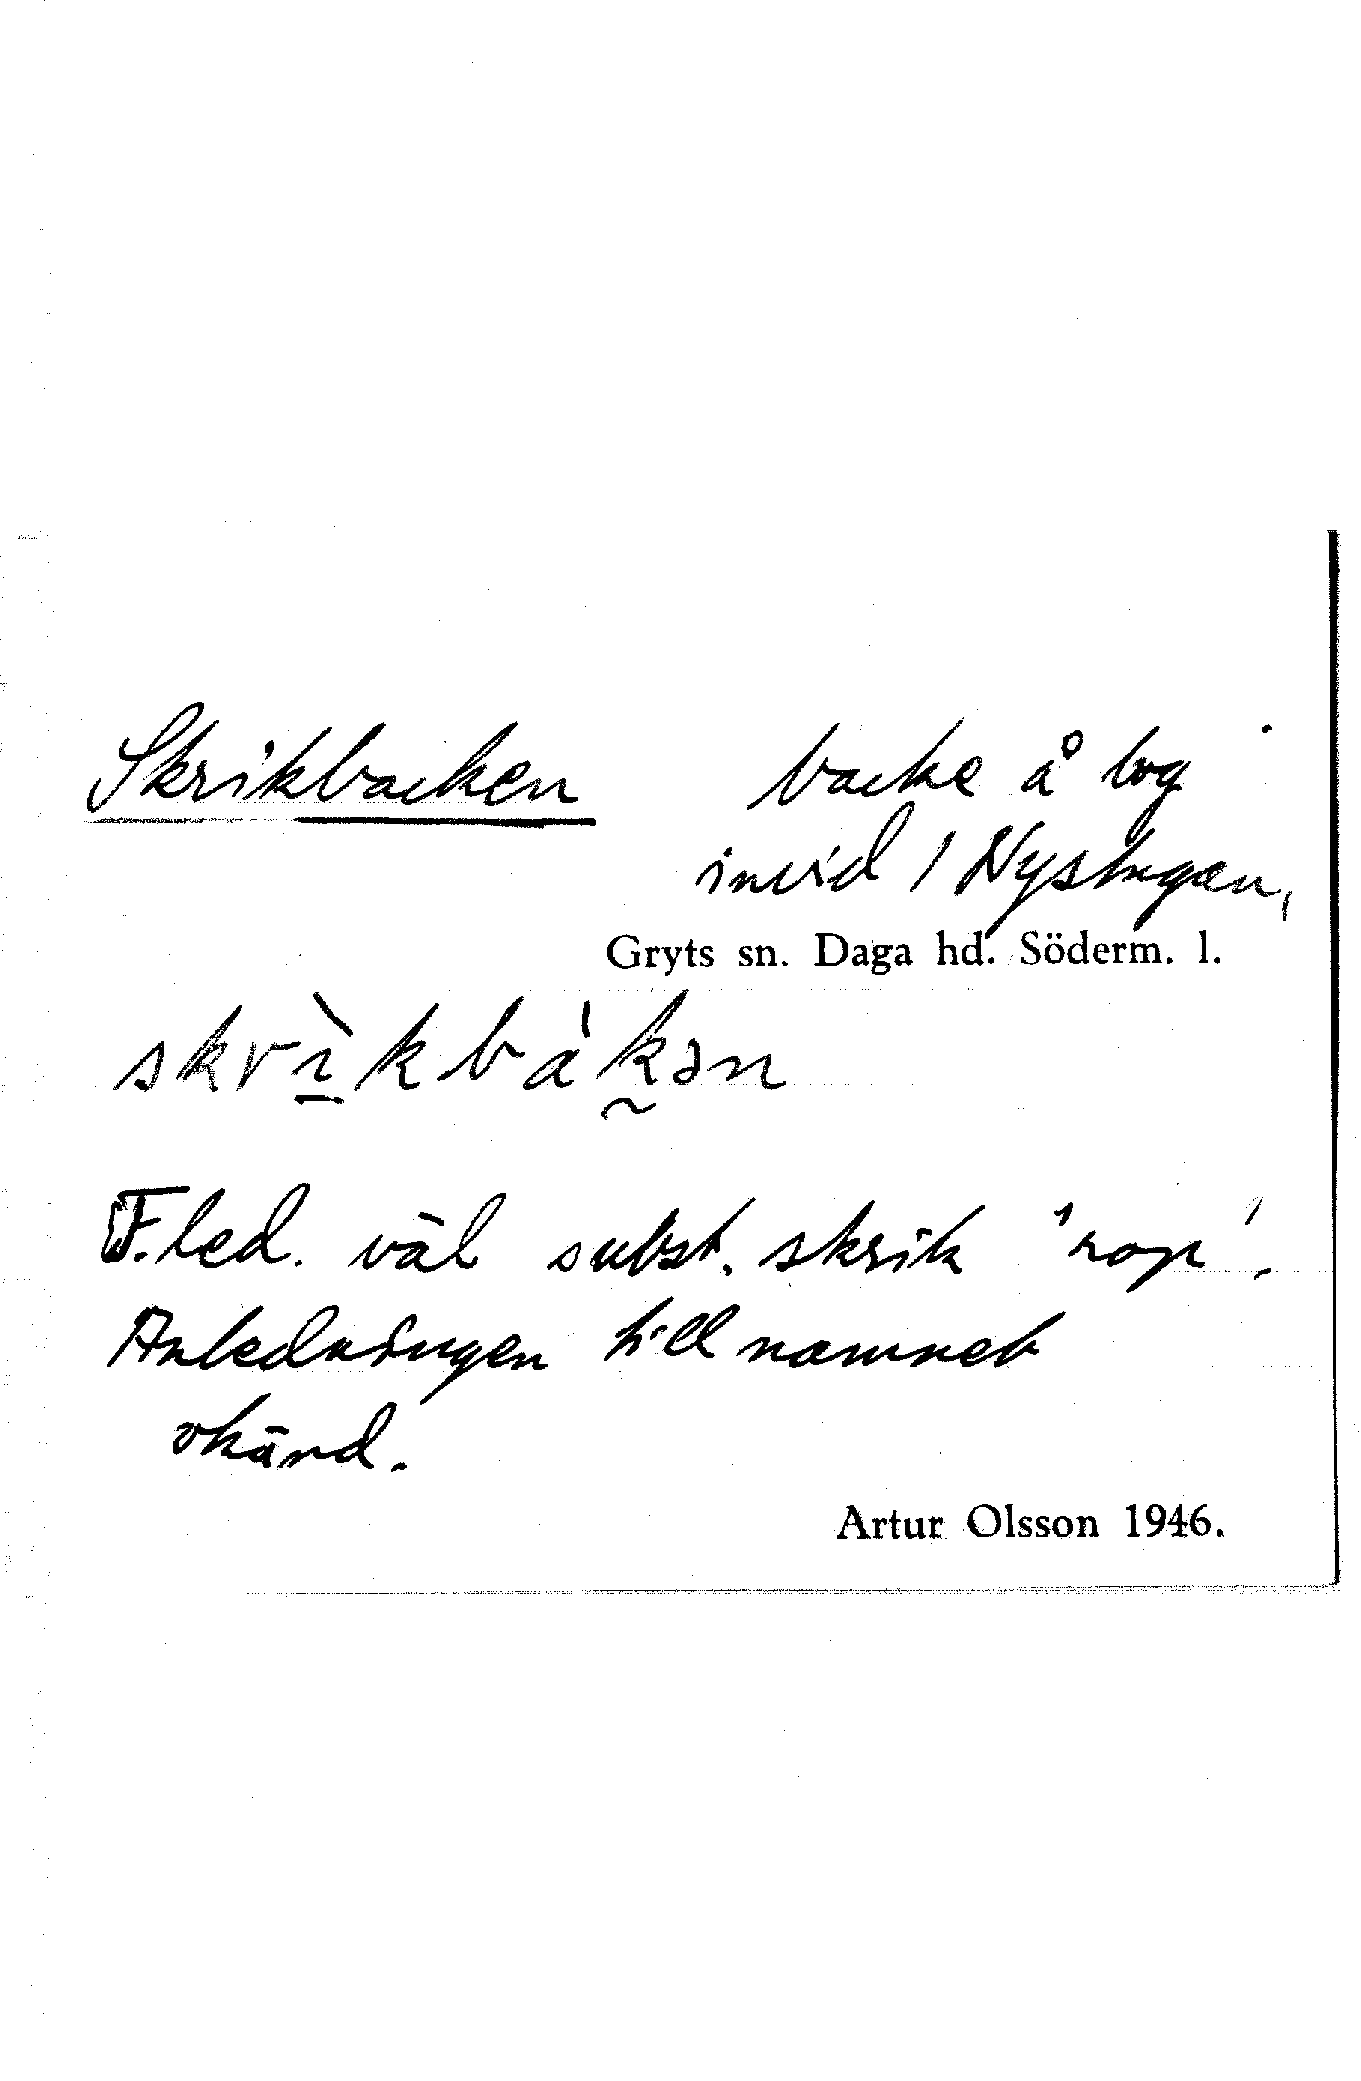 Skrikbacken backe å log
invid / Nystugan,
Gryts sn. Daga hd. Söderm. l.
skrìkbákən
F.led. väl subst. skrik 'rop'.
Anledningen till namnet
okänd.
Artur Olsson 1946.